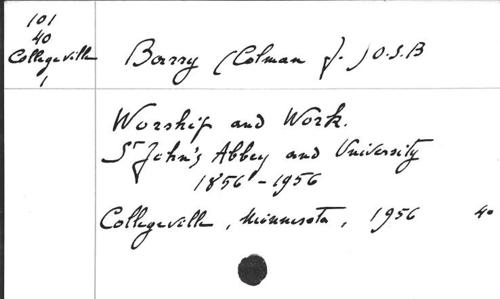 101
40
Collegeville
1
Barry (Colman J.) O.S.B
Worship and Work.
St John's Abbey and University
1856-1956
Collegeville, Minnesota, 1956 4°